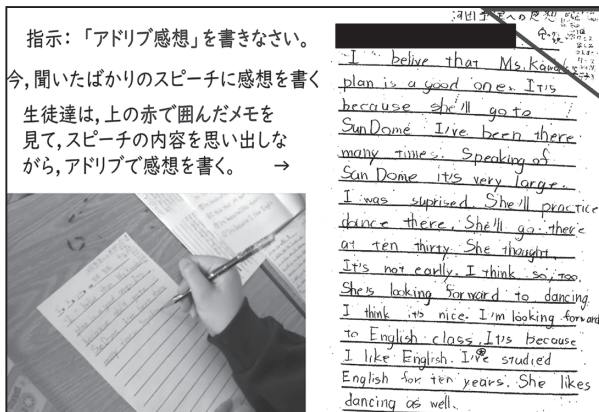 指示：「アドリブ感想」を書きなさい。
今，聞いたばかりのスピーチに感想を書く
生徒達は，上の赤で囲んだメモを
見て，スピーチの内容を思い出しな
がら，アドリブで感想を書く。 →
への感想
I belive that Ms.
plan is a good one. It's
because she'll go to
SunDome I've been there
many times. Speaking of
San Dome it's very large.
I was suprised. She'll practice
dance there. She'll go there
at ten thirty She thought
It's not earlly. I think so, too.
She's looking forward to dancing
I think it's nice. I'm looking forward
to English class. It's because
I like English. I've studied
English for ten years. She likes
dancing as well.